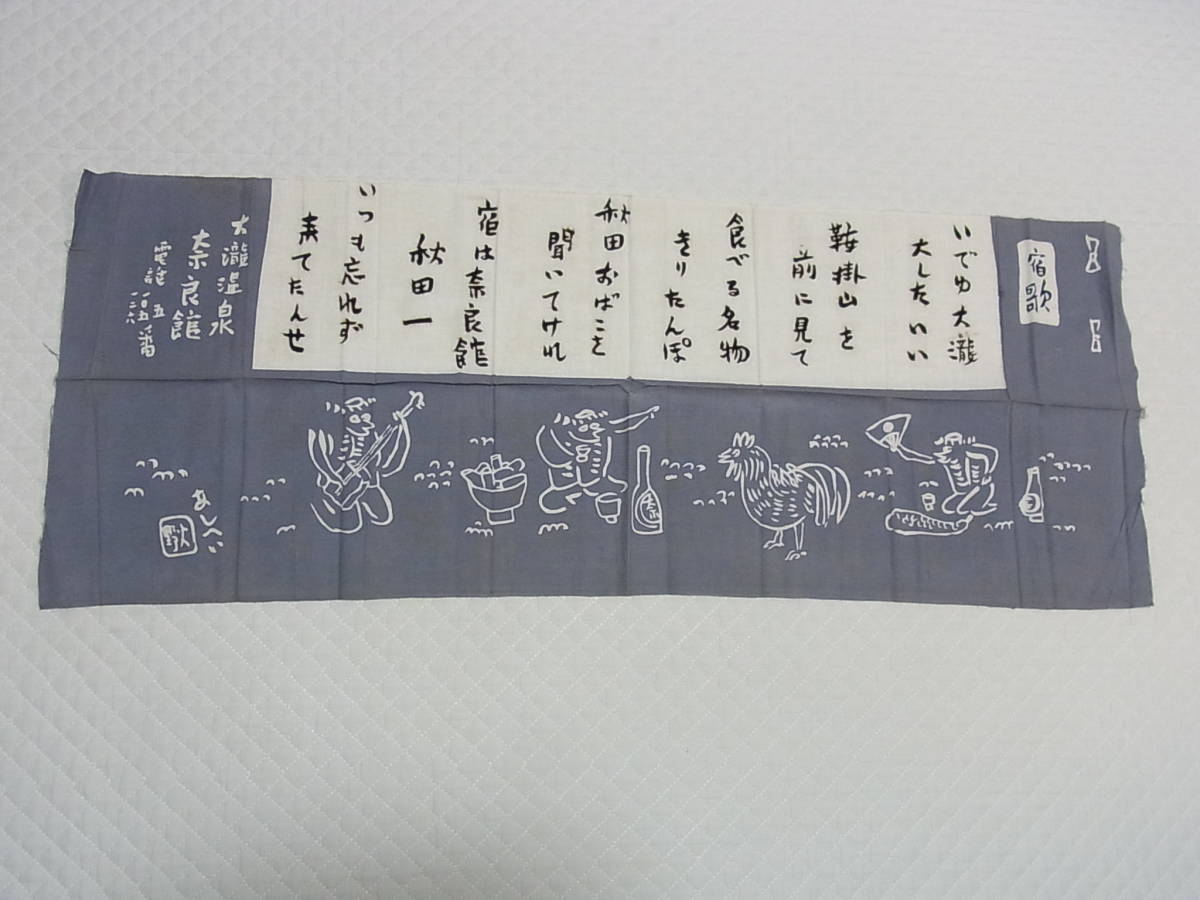 宿歌
いでゆ大瀧
大したいい
鞍掛山を
前に見て
食べる名物
きりたんぽ
秋田おばこを
聞いてけれ
宿は奈良館
秋田一
いつも忘れず
来てたんせ
大瀧温泉
奈良館
電話 五
一五番
一二六
あしへい